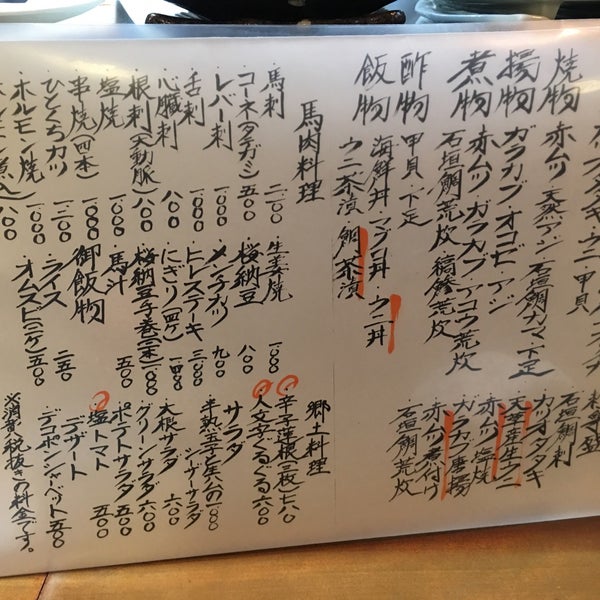 焼物 赤ムツ 天然アジ 石垣鯛カマ 下足
揚物 ガラカブ・オコゼ・アジ
煮物 赤ムツ ガラカブ・アコウ荒炊
石垣鯛荒炊 縞鯵荒炊
酢物 甲貝・下足
飯物 海鮮丼 マグロ丼・ウニ丼
ウニ茶漬 鯛茶漬
石垣鯛刺
カツオタタキ
天草産生ウニ
赤ムツ塩焼
ガラカブ唐揚
赤ムツ煮付け
石垣鯛荒炊
馬肉料理
・馬刺 二一〇〇
・コーネ(タテガミ) 五〇〇
・レバー刺 一〇〇〇
・舌刺 一〇〇〇
・心臓刺 八〇〇
・根刺(大動脈) 八〇〇
・塩焼 一〇〇〇
・串焼(四本) 一〇〇〇
・ひとくちカツ 一二〇〇
・ホルモン焼 一〇〇〇
八〇〇
・生姜焼 一〇〇〇
・桜納豆 六〇〇
・メンチカツ 九〇〇
・ヒレステーキ 三〇〇〇
・にぎり(四ケ) 一四〇〇
・桜納豆手巻(二本) 一〇〇〇
・馬汁 五〇〇
御飯物
・ライス 二五〇
・オムスビ(二ケ) 五〇〇
郷土料理
・辛子蓮根(三枚) 七八〇
・人文字ぐるぐる 六〇〇
サラダ
・半熟玉子と生ハムの シーザーサラダ 一〇〇〇
・大根サラダ 六〇〇
・グリーンサラダ 六〇〇
・ポテトサラダ 五〇〇
・塩トマト 五〇〇
デザート
・デコポンシャーベット 五〇〇
※消費税抜きの料金です。